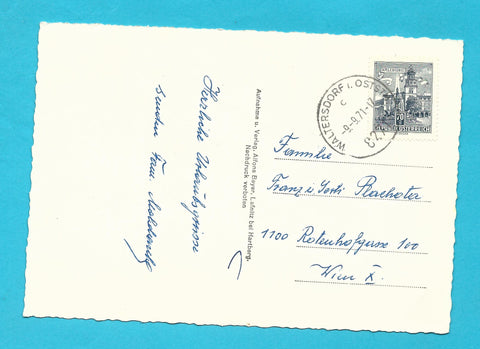 Herrliche Urlaubsgrüsse
senden Fam.
Aufnahme u. Verlag, Alfons Bayer, Lafnitz bei Hartberg.
Nachdruck verboten
WALTERSDORF I. OSTSTM
-9.-9.71-17
8271
c
REPUBLIK ÖSTERREICH
Familie
Franz u. Gerti
1100 Rotenhofgasse 100
Wien X.